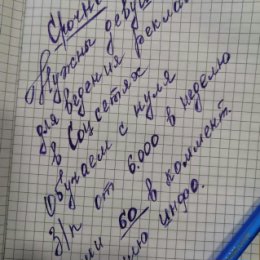 Срочн
Нужны деву
для ведения реклам
в Соцсетях
Обучаем с нуля
З/п от 6.000 в неделю
60 в коммент.
инфо.